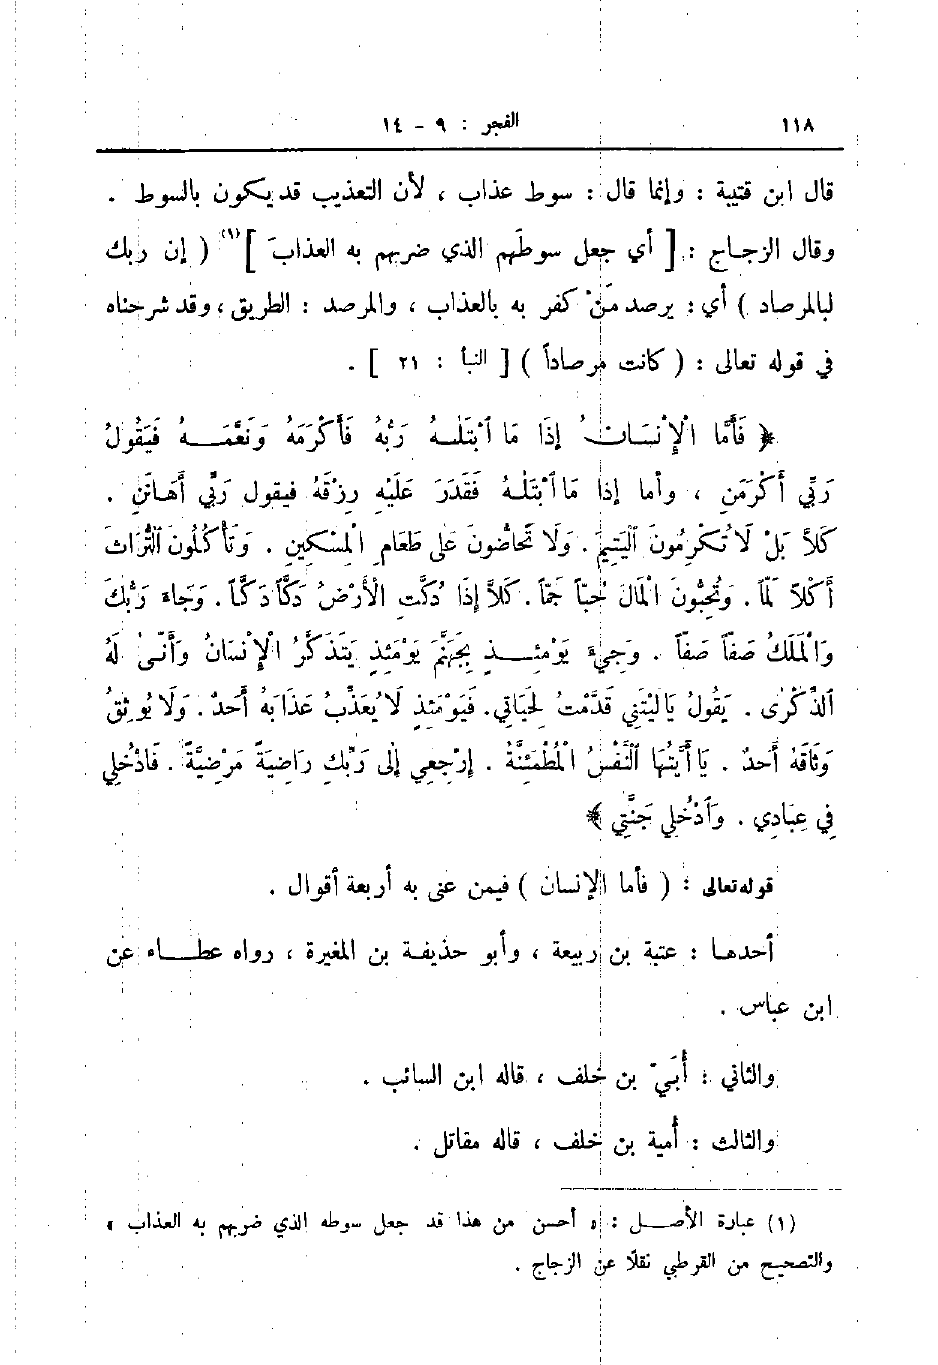 ١١٨ الفجر : ٩ - ١٤
قال ابن قتيبة : وإنما قال : سوط عذاب ، لأن التعذيب قد يكون بالسوط .
وقال الزجاج : [ أي جعل سوطَهم الذي ضربهم به العذابَ ](١) ( إن ربك
لبالمرصاد ) أي : يرصد مَنْ كفر به بالعذاب ، والمرصد : الطريق ، وقد شرحناه
في قوله تعالى : ( كانت مرصاداً ) [ النبأ : ٢١ ] .
﴿ فَأَمَّا الْإِنْسَانُ إِذَا مَا ٱبْتَلٰهُ رَبُّهُ فَأَكْرَمَهُ وَنَعَّمَهُ فَيَقُولُ
رَبِّي أَكْرَمَنِ ، وأما إذا مَا ٱبْتَلٰهُ فَقَدَرَ عَلَيْهِ رِزْقَهُ فيقول رَبِّي أَهَانَنِ .
كَلَّا بَلْ لَا تُكْرِمُونَ ٱلْيَتِيمَ . وَلَا تَحَاضُّونَ عَلَى طَعَامِ الْمِسْكِينِ . وَتَأْكُلُونَ ٱلتُّرَاثَ
أَكْلاً لَمّاً . وَتُحِبُّونَ الْمَالَ حُبّاً جَمّاً . كَلَّا إِذَا دُكَّتِ الْأَرْضُ دَكّاً دَكّاً . وَجَاءَ رَبُّكَ
وَالْمَلَكُ صَفّاً صَفّاً . وَجِيءَ يَوْمَئِذٍ بِجَهَنَّمَ يَوْمَئِذٍ يَتَذَكَّرُ الْإِنْسَانُ وَأَنَّىٰ لَهُ
ٱلذِّكْرٰى . يَقُولُ يَا لَيْتَنِي قَدَّمْتُ لِحَيَاتِي . فَيَوْمَئِذٍ لَا يُعَذِّبُ عَذَابَهُ أَحَدٌ . وَلَا يُوثِقُ
وَثَاقَهُ أَحَدٌ . يَا أَيَّتُهَا ٱلنَّفْسُ الْمُطْمَئِنَّةُ . اِرْجِعِي إِلَى رَبِّكِ رَاضِيَةً مَرْضِيَّةً . فَادْخُلِي
فِي عِبَادِي . وَٱدْخُلِي جَنَّتِي ﴾
قوله تعالى : ( فأما الإنسان ) فيمن عنى به أربعة أقوال .
أحدها : عتبة بن ربيعة ، وأبو حذيفة بن المغيرة ، رواه عطاء عن
ابن عباس .
والثاني : أُبَيّ بن خلف ، قاله ابن السائب .
والثالث : أُمية بن خلف ، قاله مقاتل .
(١) عبارة الأصل : « أحسن من هذا قد جعل سوطه الذي ضربهم به العذاب »
والتصحيح من القرطبي نقلاً عن الزجاج .